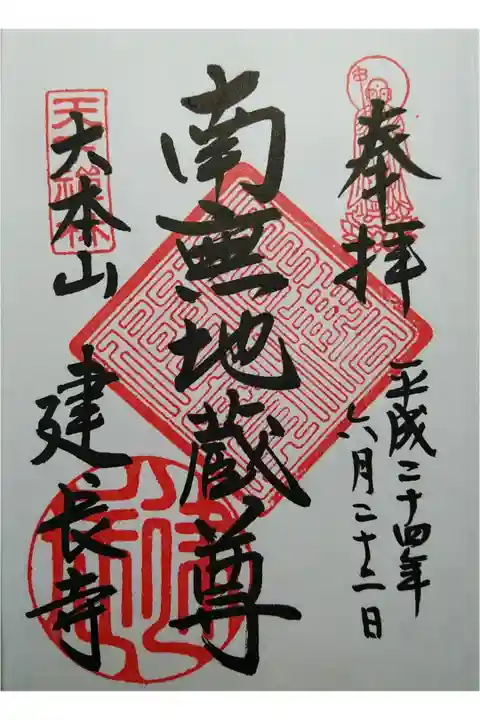 奉拝
平成二十四年
六月二十二日
南無地蔵尊
大本山
建長寺